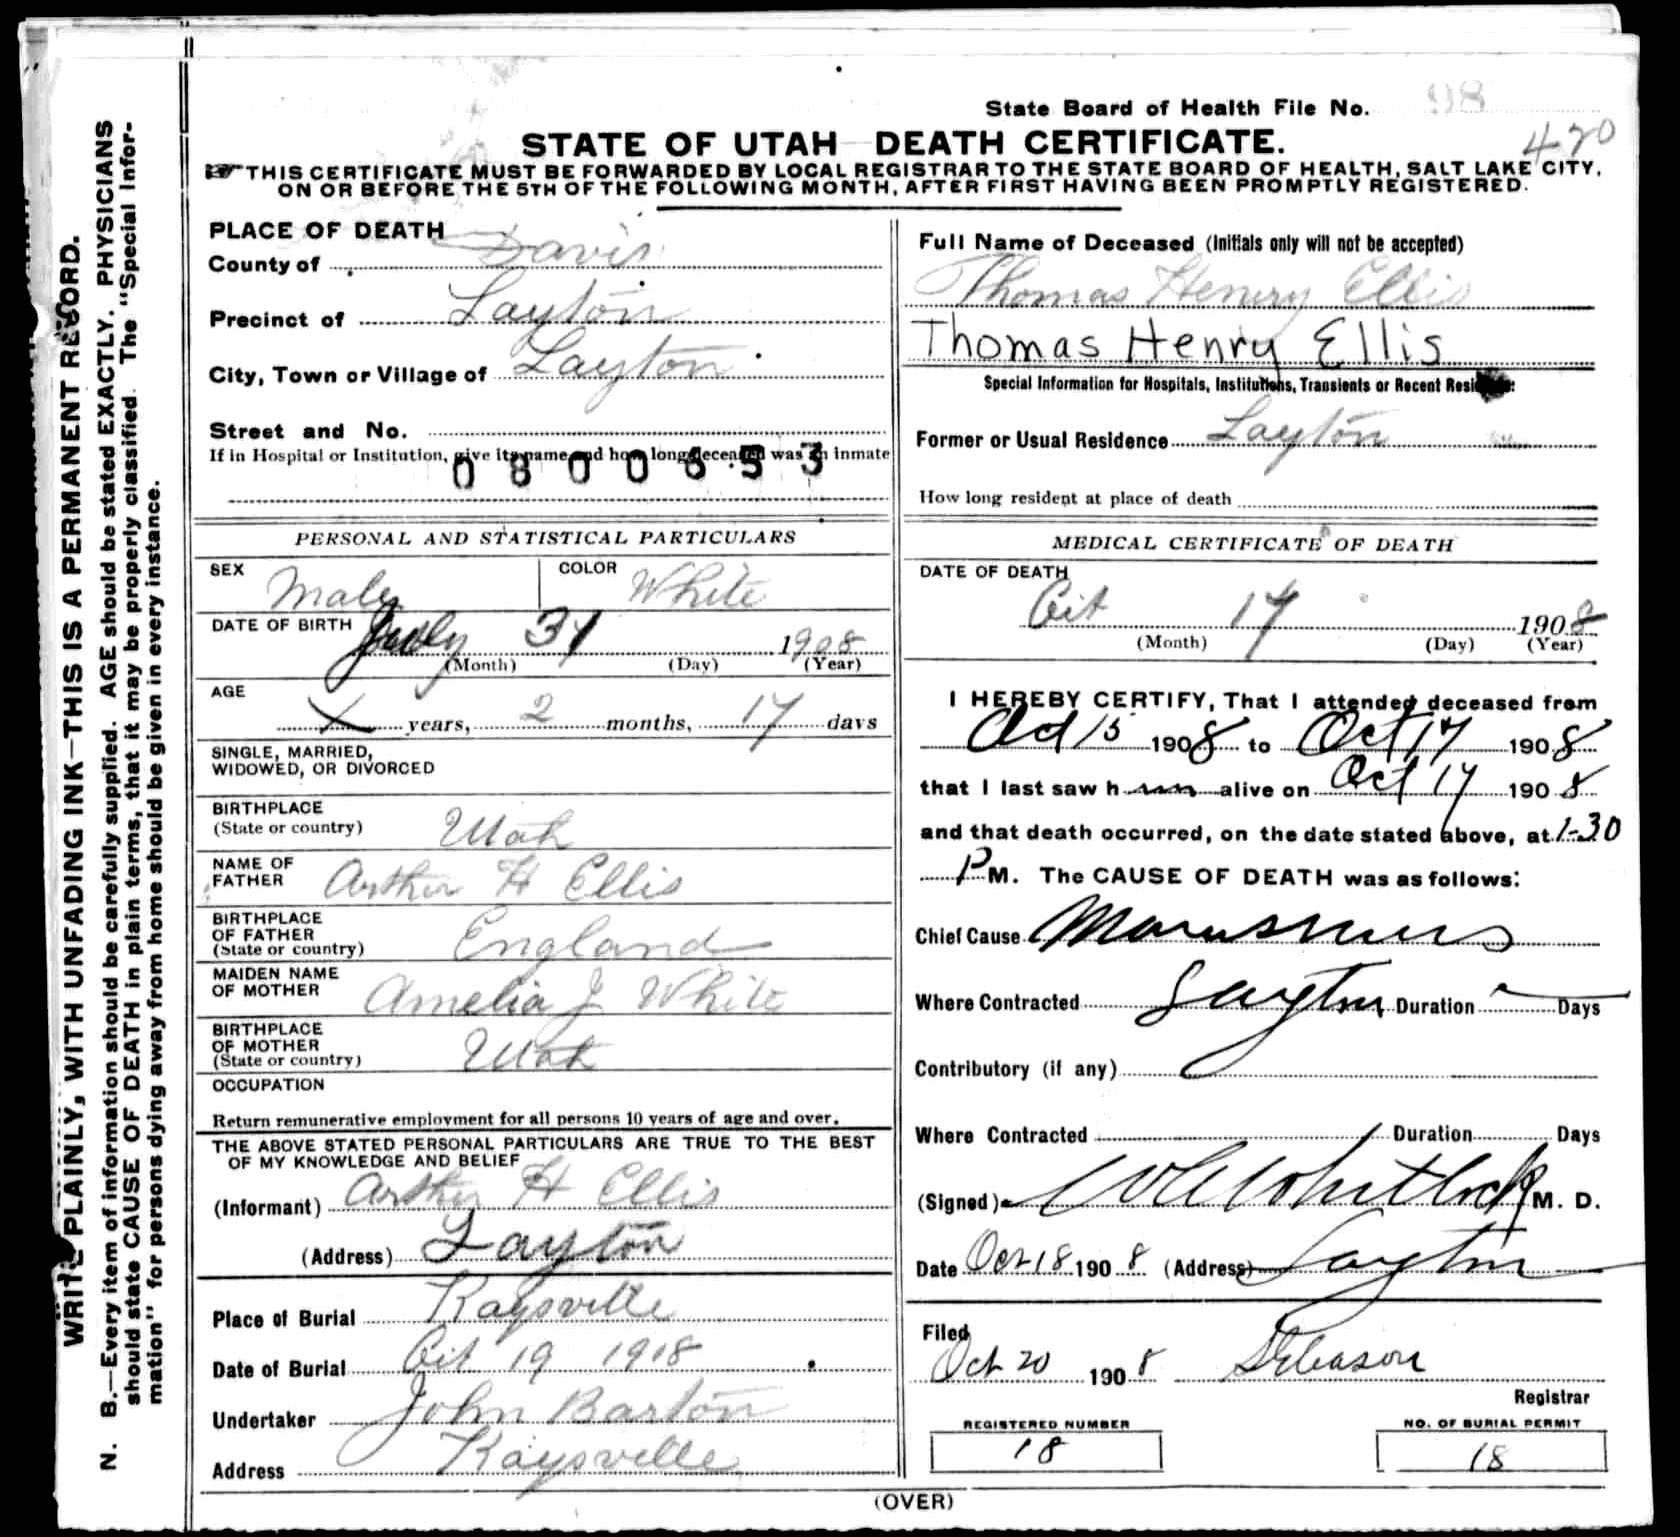 State Board of Health File No. 98
STATE OF UTAH—DEATH CERTIFICATE.
420
THIS CERTIFICATE MUST BE FORWARDED BY LOCAL REGISTRAR TO THE STATE BOARD OF HEALTH, SALT LAKE CITY,
ON OR BEFORE THE 5TH OF THE FOLLOWING MONTH, AFTER FIRST HAVING BEEN PROMPTLY REGISTERED.
WRITE PLAINLY, WITH UNFADING INK—THIS IS A PERMANENT RECORD.
N. B.—Every item of information should be carefully supplied. AGE should be stated EXACTLY. PHYSICIANS
should state CAUSE OF DEATH in plain terms, that it may be properly classified. The "Special Infor-
mation" for persons dying away from home should be given in every instance.
PLACE OF DEATH
County of Davis
Precinct of Layton
City, Town or Village of Layton
Street and No.
If in Hospital or Institution, give its name and how long deceased was an inmate
0800653
PERSONAL AND STATISTICAL PARTICULARS
SEX Male COLOR White
DATE OF BIRTH July 31 1908
(Month) (Day) (Year)
AGE
x years, 2 months, 17 days
SINGLE, MARRIED,
WIDOWED, OR DIVORCED
BIRTHPLACE
(State or country) Utah
NAME OF
FATHER Arthur H Ellis
BIRTHPLACE
OF FATHER
(State or country) England
MAIDEN NAME
OF MOTHER Amelia J White
BIRTHPLACE
OF MOTHER
(State or country) Utah
OCCUPATION
Return remunerative employment for all persons 10 years of age and over.
THE ABOVE STATED PERSONAL PARTICULARS ARE TRUE TO THE BEST
OF MY KNOWLEDGE AND BELIEF
(Informant) Arthur H Ellis
(Address) Layton
Place of Burial Kaysville
Date of Burial Oct 19 1908
Undertaker John Barton
Address Kaysville
Full Name of Deceased (Initials only will not be accepted)
Thomas Henry Ellis
Thomas Henry Ellis
Special Information for Hospitals, Institutions, Transients or Recent Residents:
Former or Usual Residence Layton
How long resident at place of death
MEDICAL CERTIFICATE OF DEATH
DATE OF DEATH
Oct 17 1908
(Month) (Day) (Year)
I HEREBY CERTIFY, That I attended deceased from
Oct 15 1908 to Oct 17 1908
that I last saw him alive on Oct 17 1908
and that death occurred, on the date stated above, at 1-30
P M. The CAUSE OF DEATH was as follows:
Chief Cause Marasmus
Where Contracted Layton Duration Days
Contributory (if any)
Where Contracted Duration Days
(Signed) Whitlock M. D.
Date Oct 18 1908 (Address) Layton
Filed
Oct 20 1908 Gleason
Registrar
REGISTERED NUMBER
18
NO. OF BURIAL PERMIT
18
(OVER)